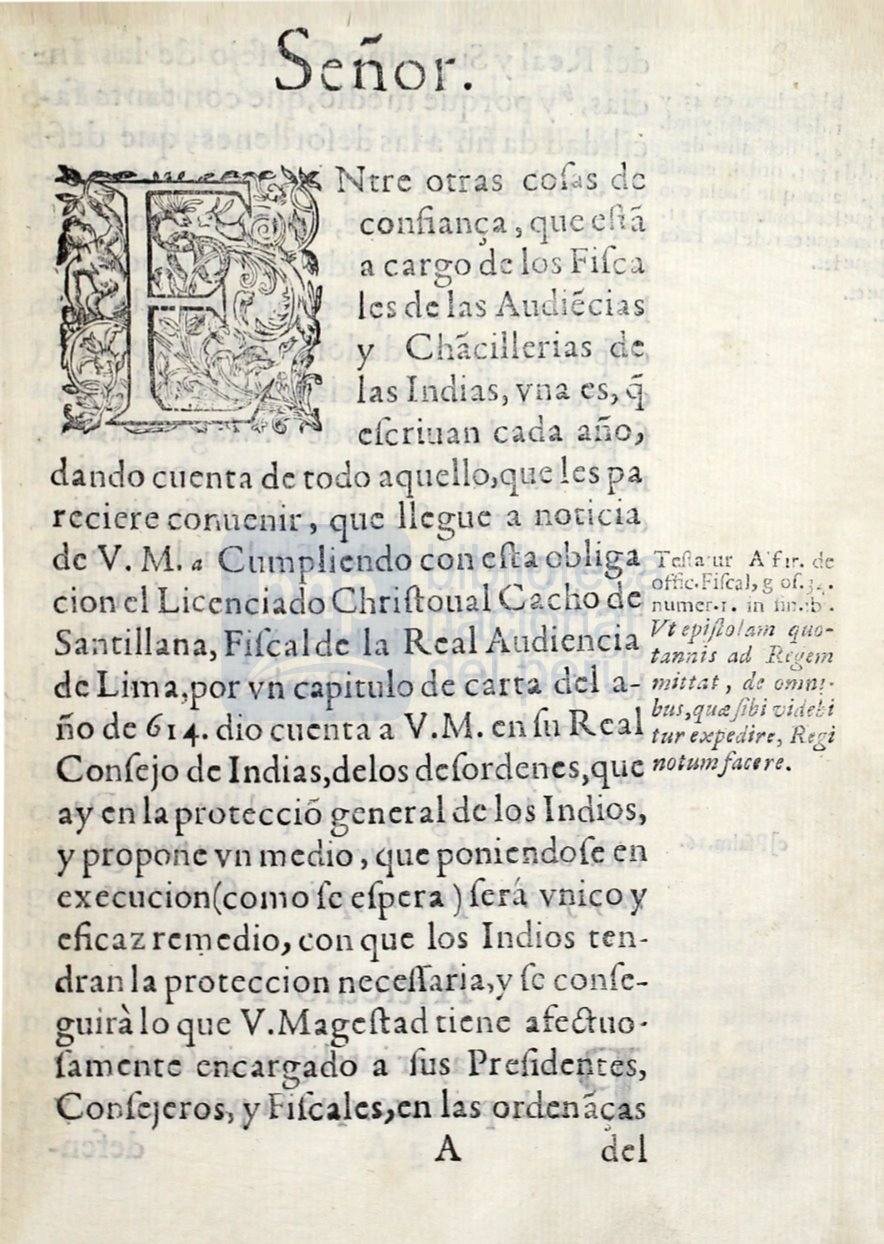 Señor.
ENtre otras coſas de
confiança, que eſtã
a cargo de los Fiſca
les de las Audiẽcias
y Chãcillerias de
las Indias, vna es, q̃
eſcriuan cada año,
dando cuenta de todo aquello, que les pa
reciere conuenir, que llegue a noticia
de V. M. a Cumpliendo con eſta obliga
cion el Licenciado Chriſtoual Cacho de
Santillana, Fiſcal de la Real Audiencia
de Lima, por vn capitulo de carta del a-
ño de 614. dio cuenta a V.M. en ſu Real
Conſejo de Indias, de los deſordenes, que
ay en la protecciõ general de los Indios,
y propone vn medio, que poniendoſe en
execucion (como ſe eſpera) ſerá vnico y
eficaz remedio, con que los Indios ten-
dran la proteccion neceſſaria, y ſe conſe-
guirà lo que V. Mageſtad tiene afectuo-
ſamente encargado a ſus Preſidentes,
Conſejeros, y Fiſcales, en las ordenãças
A del
de
offic. Fiſcal,
numer. 1. in
Vt epiſtolam quo-
tannis ad Regem
mittat, de omni-
bus, quæ ſibi videbi
tur expedire, Regi
notum facere.